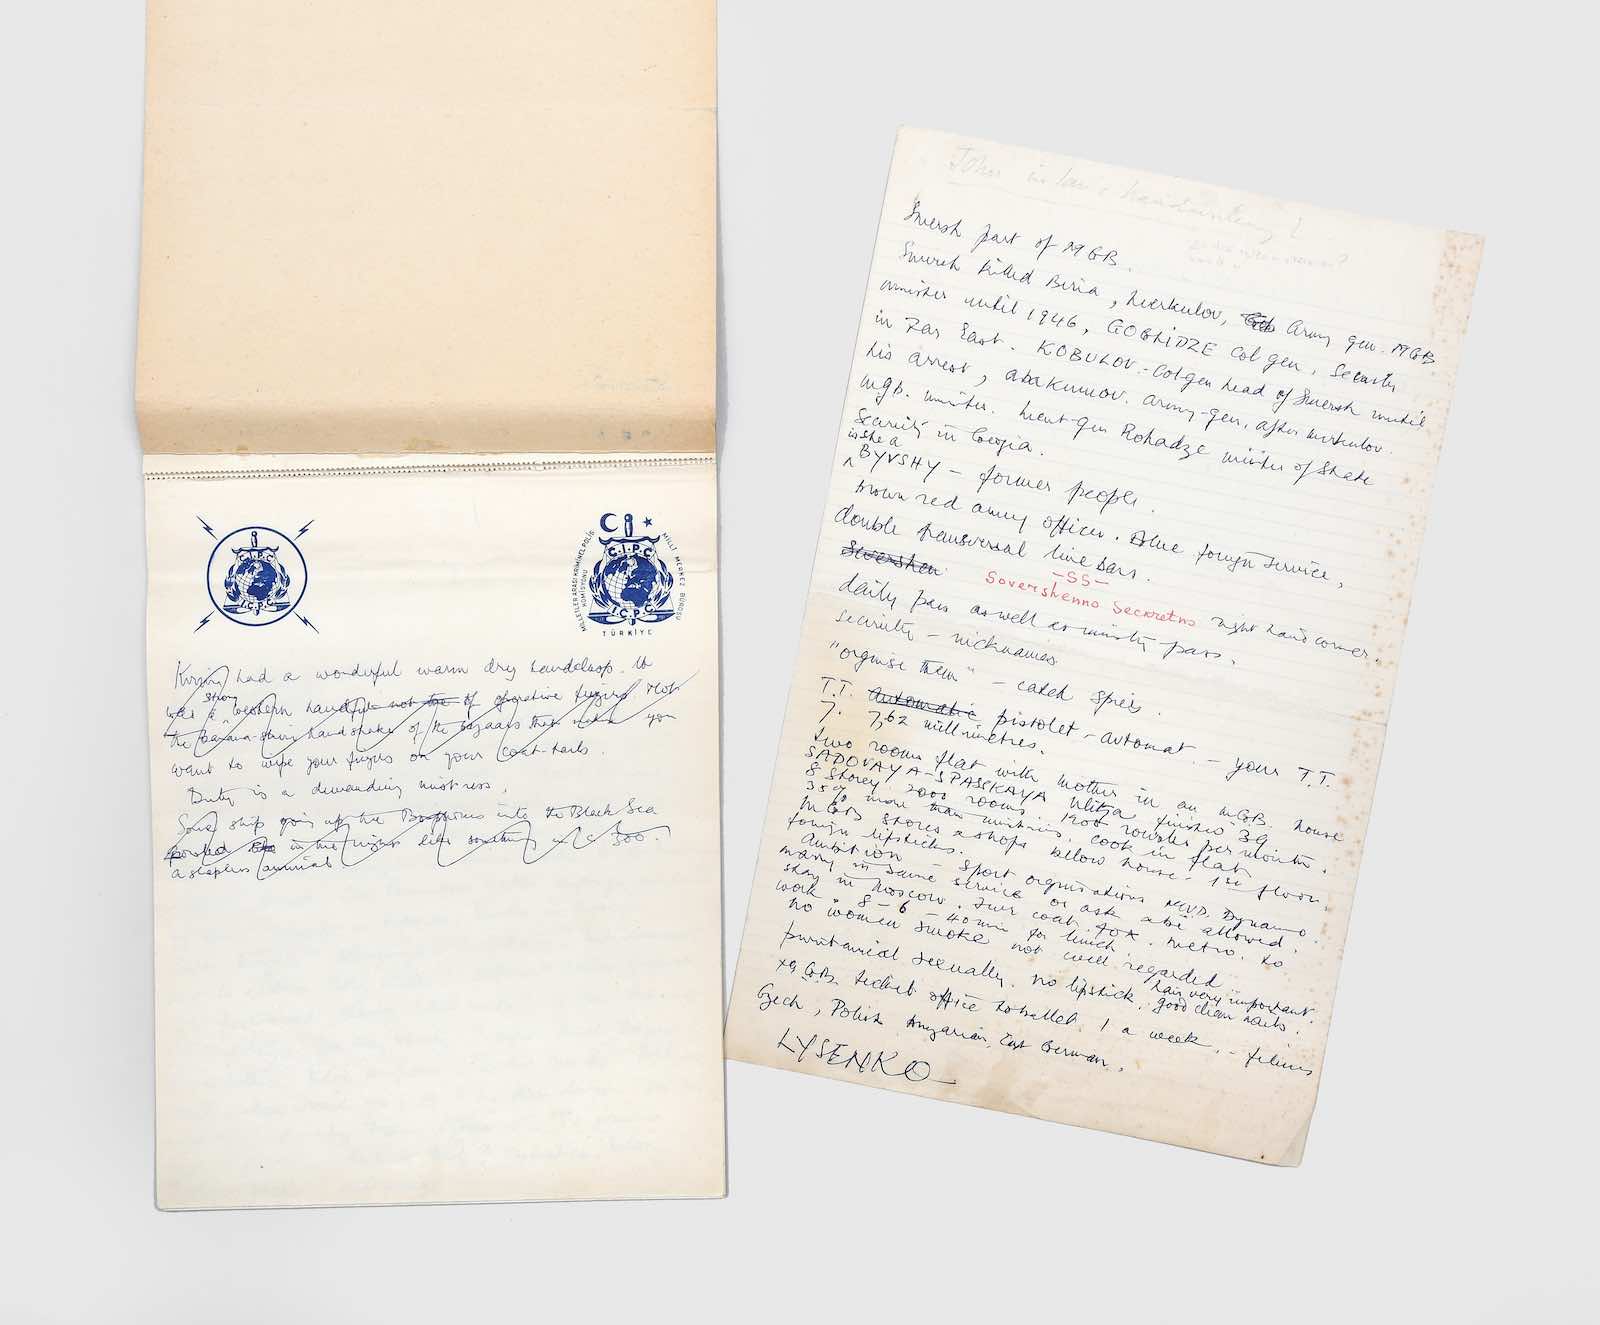 C.I.P.C
I.C.P.C
MİLLETLER ARASI KRİMİNEL POLİS
KOMİSYONU
MİLLİ MERKEZ BÜROSU
C.I.P.C
I.C.P.C
TÜRKİYE
had a wonderful warm dry handclasp. It
was a strong western handful not the of operative fingers. Not
the banana-skin handshake of the bazaars that makes you
want to wipe your fingers on your coat-tails.
Duty is a demanding mistress.
ship going up the Bosphorus into the Black Sea
in the night like something
a sleepless animal
John in law's handwriting?
Smersh part of MGB.
Smersh killed Beria, Merkulov, Army gen. MGB
minister until 1946, GOGLIDZE Col gen. Security
in Far East. KOBULOV - Col gen head of Smersh until
his arrest, abakumov. army-gen, after Merkulov.
MGB. minister. Lieut-gen Rohadze minister of State
Security in Georgia.
is she a
BYVSHY - former people.
brown red army officer. Blue foreign service,
double transversal line bars.
Sovershen
-SS-
Sovershenno Seckretno right hand corner.
daily pass as well as ministry pass.
security - nicknames
"orgnise them" - catch spies.
T.T. Automatic pistolet - automat. - your T.T.
7. 7,62 millimetres.
two rooms flat with mother in an MGB. house
SADOVAYA-SPASSKAYA Ulitza finished 39
8 storey 2000 rooms 1200 roubles per month.
35% more than ministries. cook in flat
MGB stores & shops below house - 1st floor.
foreign lipsticks.
Ambition - Sport orgnisations MVD. Dynamo.
marry in same service or ask to be allowed.
stay in Moscow. fur coat. fox. metro. to
work 8-6 - 40 min for lunch
no women smoke not well regarded
puritanical sexually. no lipstick. hair very important
good clean nails.
MGB. ticket office to ballet. 1 a week. - films
Czech, Polish Hungarian, East German.
LYSENKO